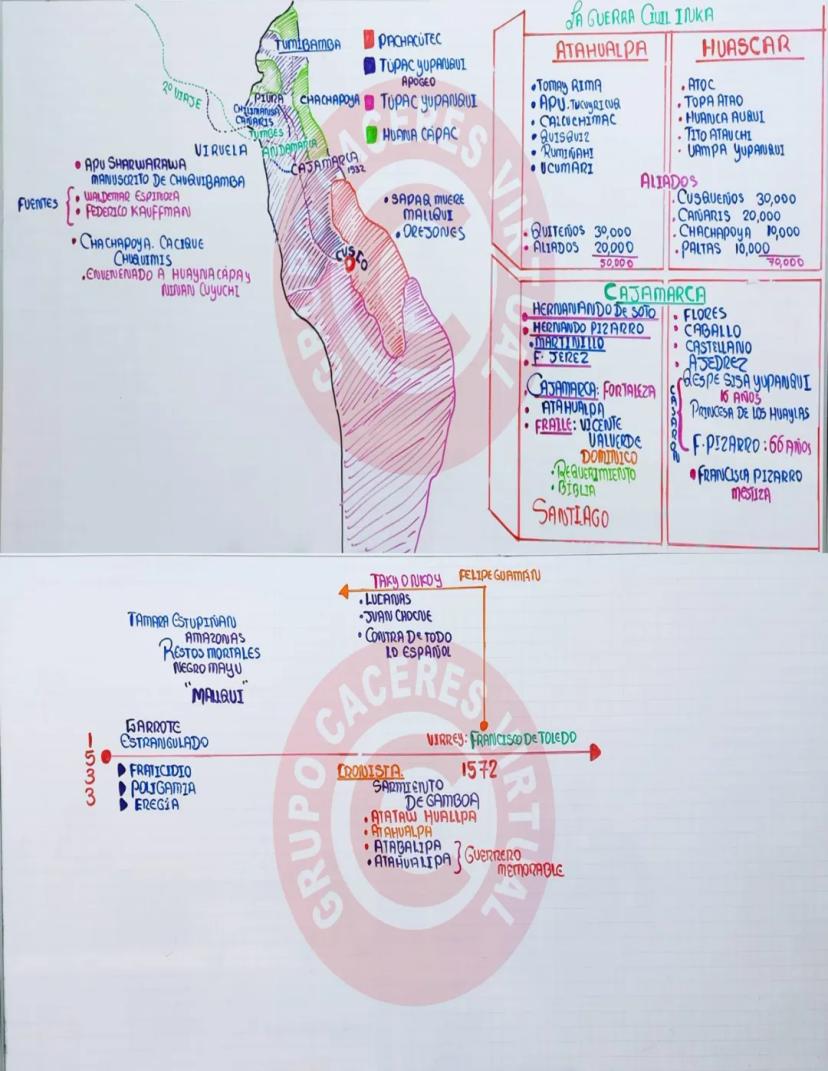 LA GUERRA CIVIL INKA
TUMIBAMBA
2º VIAJE
PIURA
CHACHAPOYA
CHILIMANSA
CAÑARIS
TUMBES
ANDAMARCA
CAJAMARCA
1532
CUSCO
PACHACÚTEC
TÚPAC YUPANQUI
APOGEO
TÚPAC YUPANQUI
HUAINA CÁPAC
VIRUELA
• APU SHARWARAWA
MANUSCRITO DE CHUQUIBAMBA
FUENTES
• WALDEMAR ESPINOZA
• FEDERICO KAUFFMAN
• CHACHAPOYA. CACIQUE
CHUQUIMIS
• ENVENENADO A HUAYNA CÁPAC Y
NINAN CUYUCHI
• SAPAQ MUERE
MALLQUI
• OREJONES
ATAHUALPA
• TOMAY RIMA
• APU. TUCUYRICUQ
• CALCUCHIMAC
• QUISQUIZ
• RUMIÑAHI
• UCUMARI
• QUITEÑOS 30,000
• ALIADOS 20,000
50,000
HUASCAR
• ATOC
• TOPA ATAO
• HUANCA AUQUI
• TITO ATAUCHI
• UAMPA YUPANQUI
ALIADOS
• CUSQUEÑOS 30,000
• CAÑARIS 20,000
• CHACHAPOYA 10,000
• PALTAS 10,000
70,000
CAJAMARCA
• HERNANANDO DE SOTO
• HERNANDO PIZARRO
• MARTINILLO
• F. JEREZ
• CAJAMARCA: FORTALEZA
• ATAHUALPA
• FRAILE: VICENTE
VALVERDE
DOMINICO
• REQUERIMIENTO
• BIBLIA
SANTIAGO
• FLORES
• CABALLO
• CASTELLANO
• AJEDREZ
QISPE SISA YUPANQUI
16 AÑOS
PRINCESA DE LOS HUAYLAS
F. PIZARRO: 66 AÑOS
CASARON
• FRANCISCA PIZARRO
MESTIZA
GRUPO CACERES VIRTUAL
TAKY ONKOY
FELIPE GUAMÁN
• LUCANAS
• JUAN CHOCNE
• CONTRA DE TODO
LO ESPAÑOL
TAMARA ESTUPIÑAN
AMAZONAS
RESTOS MORTALES
NEGRO MAYU
"MALLQUI"
GARROTE
ESTRANGULADO
1533
FRATICIDIO
POLIGAMIA
EREGÍA
VIRREY: FRANCISCO DE TOLEDO
1572
CRONISTA:
SARMIENTO
DE GAMBOA
• ATATAW HUALLPA
• ATAHUALPA
• ATABALIPA
• ATAHUALIPA
GUERRERO
MEMORABLE
GRUPO CACERES VIRTUAL